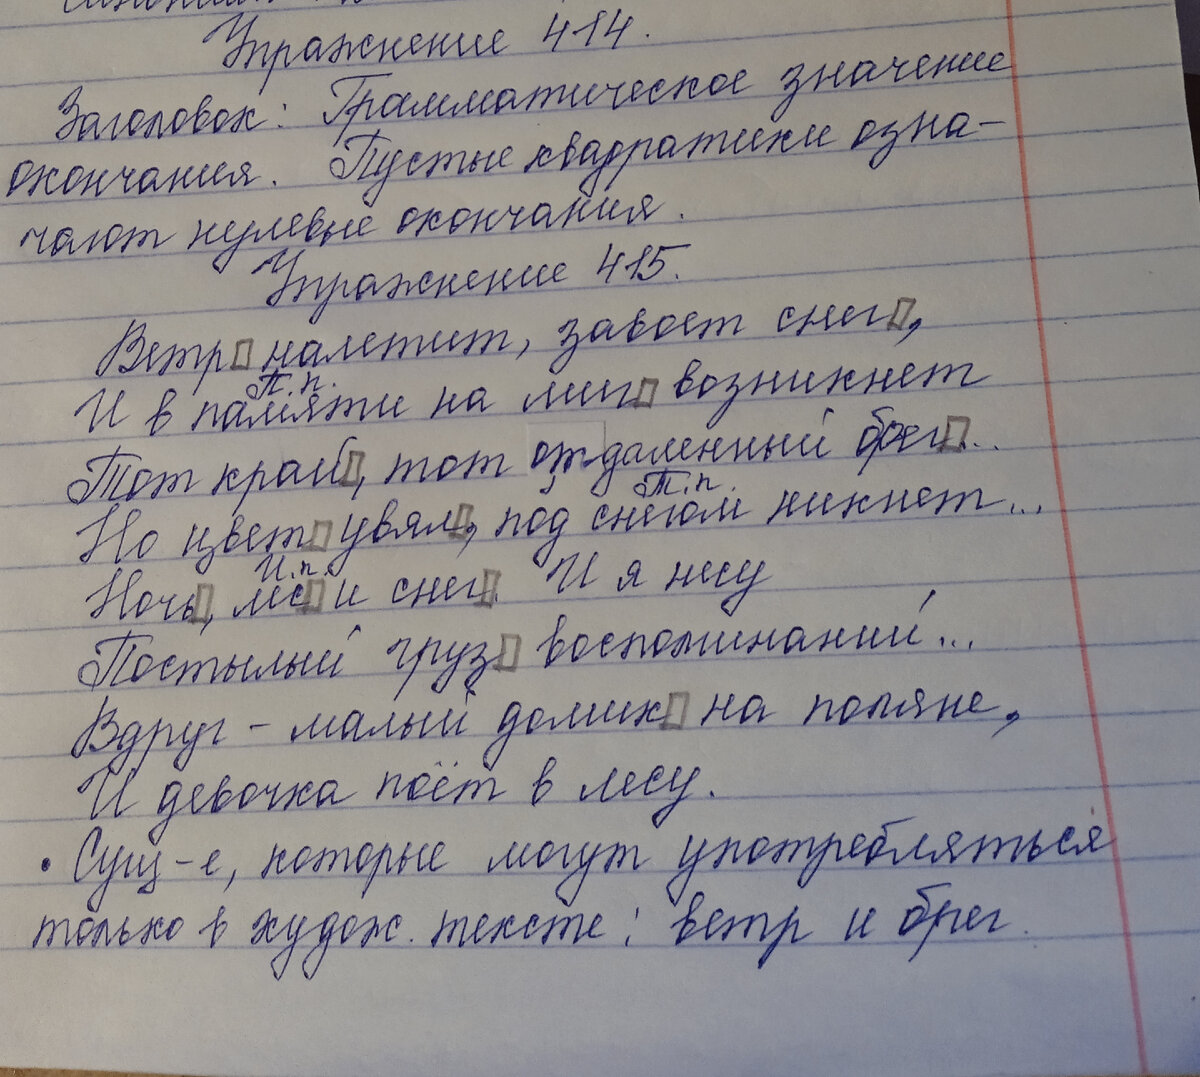 Упражнение 414.
Заголовок: Грамматическое значение
окончания. Пустые квадратики озна-
чают нулевые окончания.
Упражнение 415.
Ветр□ налетит, завоет снег□,
Т.п.
И в памяти на миг□ возникнет
Тот край□, тот отдаленный брег□...
Т.п.
Но цвет□ увял□, под снегом никнет...
И.п.
Ночь□, лес□ и снег□. И я несу
Постылый груз□ воспоминаний...
Вдруг - малый домик□ на поляне,
И девочка поёт в лесу.
• Сущ-е, которые могут употребляться
только в худож. тексте: ветр и брег.